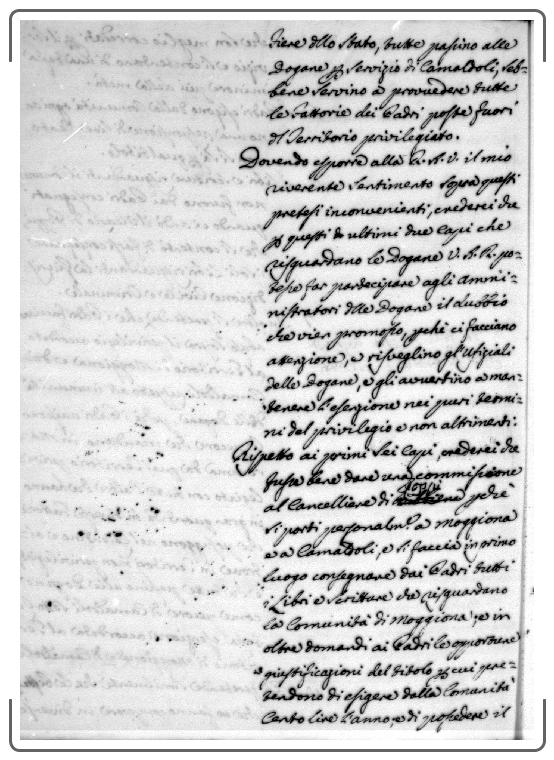 tiere dello Stato, tutte passino alle
Dogane p servizio di Camaldoli, seb-
bene servino a provvedere tutte
le Fattorie dei Padri poste fuori
del Territorio privilegiato.
Dovendo esporre alla R. A. V. il mio
riverente sentimento sopra questi
pretesi inconvenienti, crederei che
p questi due ultimi due Capi che
risguardano le Dogane V. A. R. po-
tesse far partecipare agli Ammi-
nistratori delle Dogane il dubbio
che vien promosso, pchè ci facciano
attenzione, e risveglino gl'Ufiziali
delle Dogane, e gli avvertino a man-
tenere l'esenzione nei puri termi-
ni del privilegio e non altrimenti.
Rispetto ai primi sei Capi, crederei che
fusse bene dare una commissione
al Cancelliere di Poppi pchè
si porti personalmte a Moggiona
e a Camaldoli, e si faccia in primo
luogo consegnare dai Padri tutti
i Libri e Scritture che risguardano
la Comunità di Moggiona; e in
oltre domandi ai Padri le opportune
giustificazioni del titolo p cui pre-
tendono di esigere dalla Comunità
Cento lire l'anno, e di possedere il